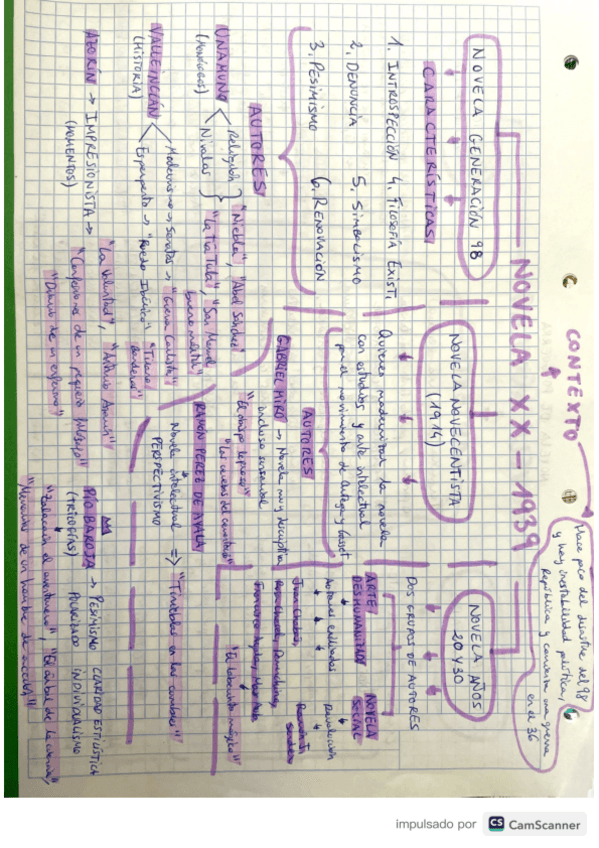 CONTEXTO
Hace poco del disastre del 98
y hay inestabilidad política,
República y comienza una guerra
en el 36
NOVELA XX - 1939
NOVELA GENERACIÓN 98
CARACTERÍSTICAS
1. INTROSPECCIÓN 4. FILOSOFÍA EXIST.
2. DENUNCIA 5. SIMBOLISMO
3. PESIMISMO 6. RENOVACIÓN
AUTORES
UNAMUNO
(monólogos)
Religión
Nivolas
"Niebla", "Abel Sánchez"
"La tía Tula", "San Manuel
bueno mártir"
VALLEINCLÁN
(HISTORIA)
Modernismo → Sonatas → "Guerra Carlista"
Esperpento → "Ruedo Ibérico" "Tirano
banderas"
AZORÍN → IMPRESIONISTA →
(MOMENTOS)
"La Voluntad", "Antonio Azorín"
"Confesiones de un pequeño filósofo"
"Diario de un enfermo"
PÍO BAROJA → PESIMISMO CLARIDAD ESTILÍSTICA
(TRILOGÍAS) INDIVIDUALISMO
"Zalacaín el aventurero", "El árbol de la ciencia,
"Memorias de un hombre de acción"
NOVELA NOVECENTISTA
(1914)
Quieren modernizar la novela
con estudios y arte intelectual
por el movimiento de Ortega y Gasset
AUTORES
GABRIEL MIRÓ → Novela muy descriptiva
incluso sensorial
"El obispo leproso"
"Las cerezas del cementerio"
RAMÓN PÉREZ DE AYALA
Novela intelectual =>
PERSPECTIVISMO
"Tinieblas en las cumbres"
NOVELA AÑOS
20 Y 30
DOS GRUPOS DE AUTORES
ARTE
DESHUMANIZADO
NOVELA
SOCIAL
Autores exiliados
Revolución
Rosa Chacel,
Francisco Ayala, Max Aub
Ramón J.
Sender
"El laberinto mágico"
impulsado por CS CamScanner